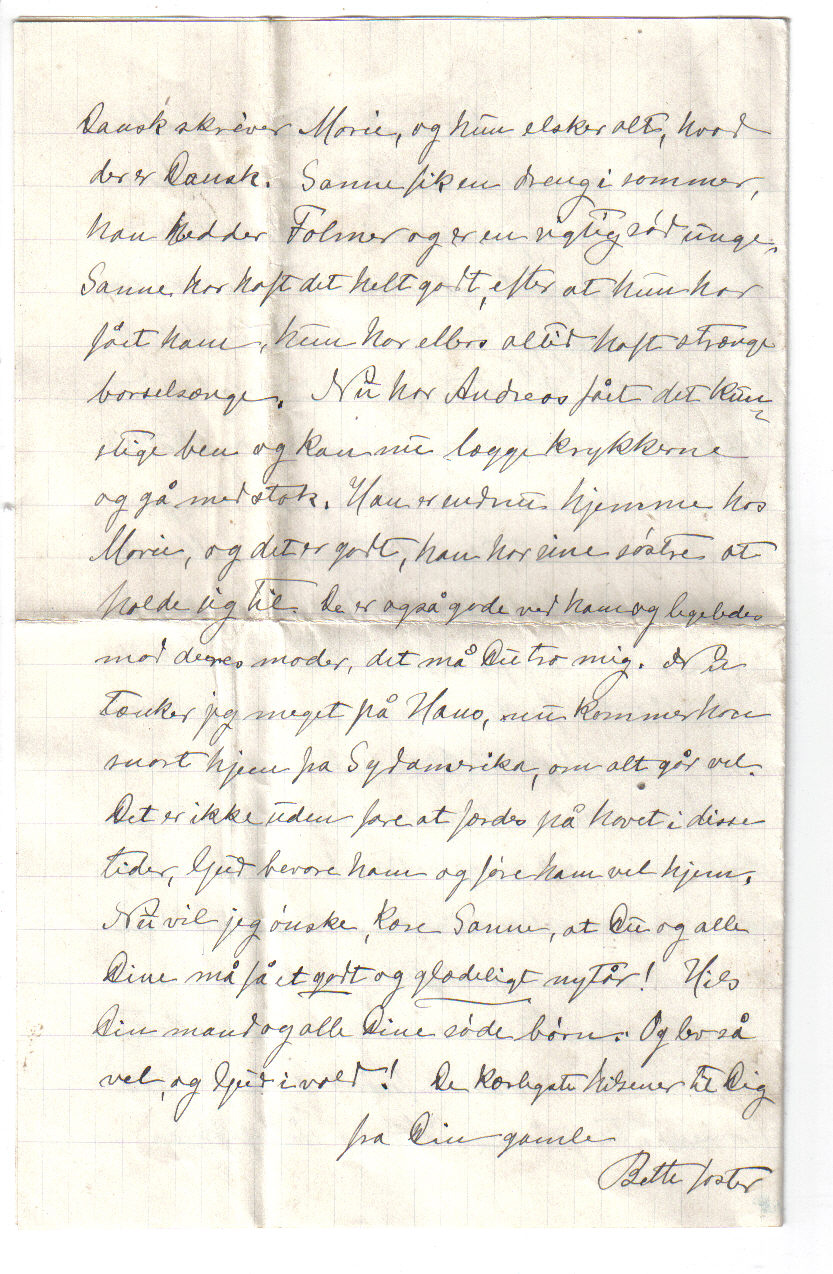 Dansk skriver Marie, og hun elsker alt, hvad
der er Dansk. Sanne fik en dreng i sommer,
han hedder Folmer og er en rigtig sød unge.
Sanne har haft det helt godt, efter at hun har
fået ham, hun har ellers altid haft strænge
barselsænge. Nu har Andreas fået det kun-
stige ben og kan nu lægge krykkerne
og gå med stok. Han er endnu hjemme hos
Marie, og det er godt, han har sine søstre at
holde sig til. De er også gode ved ham og ligeledes
mod deres moder, det må Du tro mig. Nu
tænker jeg meget på Hans, nu kommer han
snart hjem fra Sydamerika, om alt går vel.
Det er ikke uden fare at færdes på havet i disse
tider, Gud bevare ham og føre ham vel hjem.
Nu vil jeg ønske, kære Sanne, at Du og alle
Dine må få et godt og glædeligt nytår! Hils
Din mand og alle Dine søde børn. Og lev så
vel, og Gud i vold! De kærligste hilsener til Dig
fra Din gamle
Bette faster